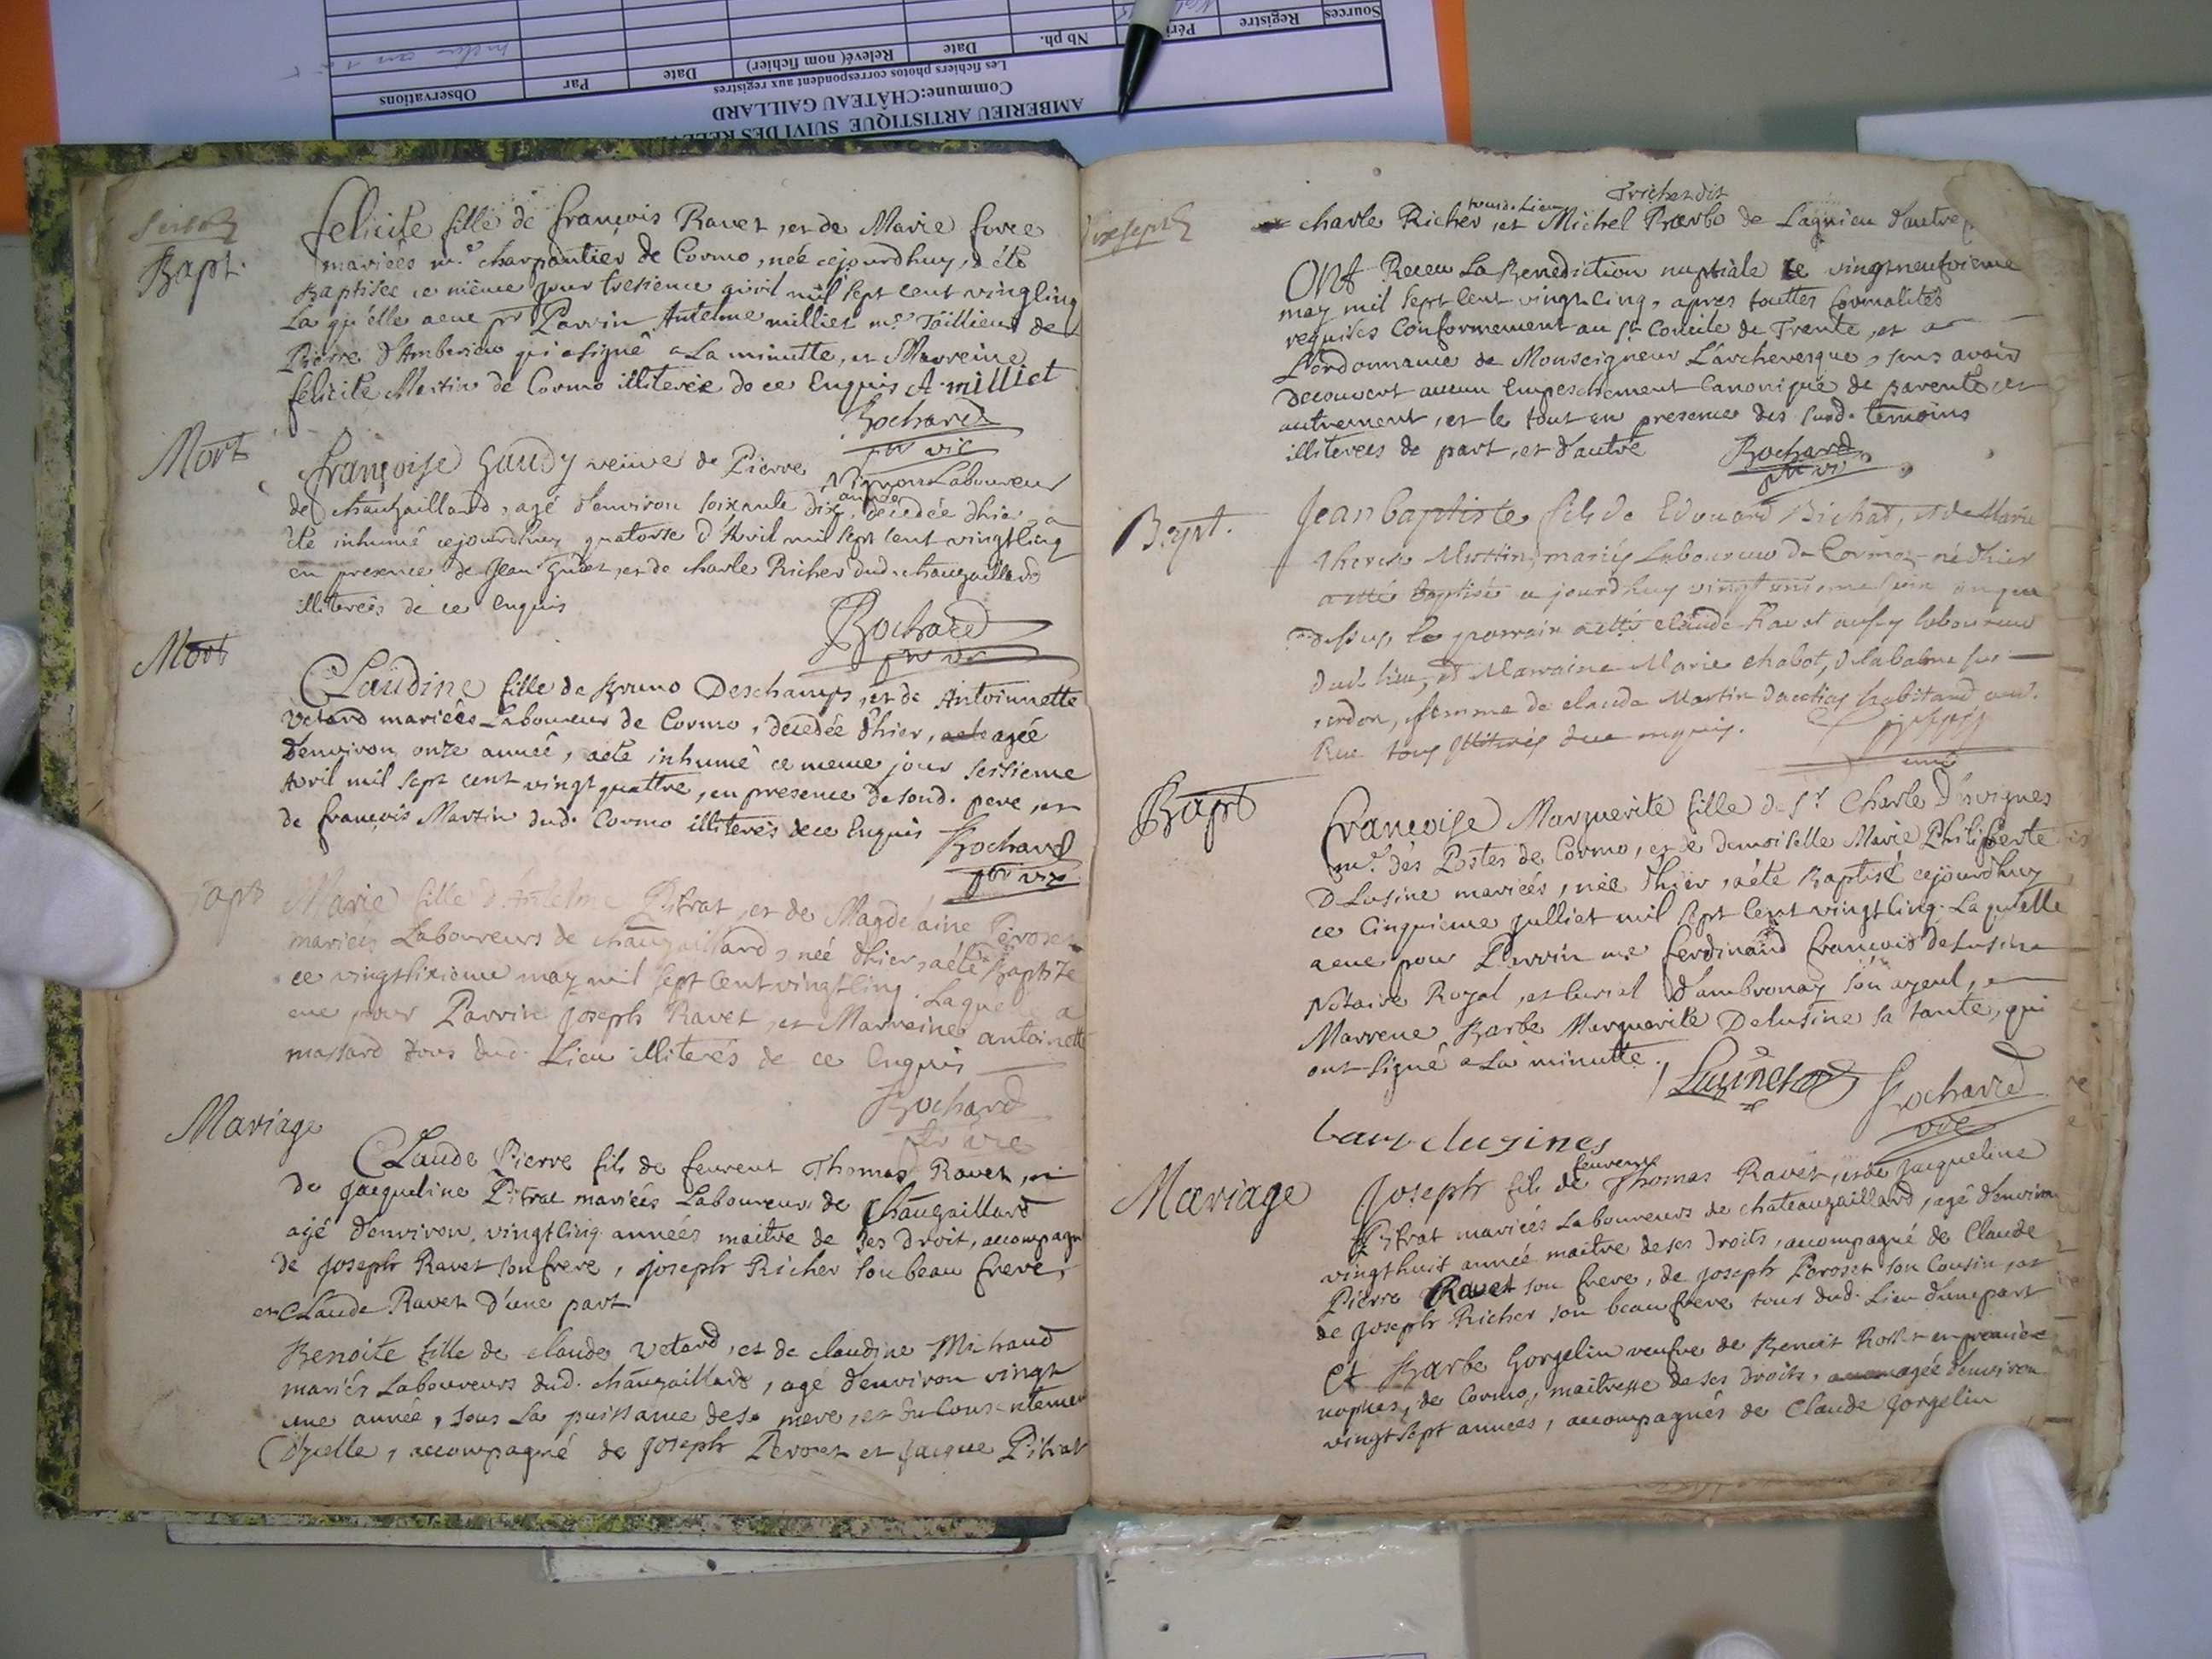 Sources
Registre
Péri
Nb ph.
Date
Relevé (nom fichier)
Date
Par
Observations
Les fichiers photos correspondent aux registres
Commune:CHÂTEAU GAILLARD
AMBERIEU ARTISTIQUE SUIVI DES RELEV
Bapt.
felicite fille de françois Ravet, et de Marie force
mariéés me. charpantier de Cormo, néé cejourdhuy, a été
Baptisée ce même jour tresieme avril mil sept cent vingtcinq
La qu'elle a eue pr Parrin Antelme milliet me. Taillieur de
Pierre d'Amberieu qui a signé a La minutte, et Marreine
felicite Martin de Cormo illiterée de ce Enquis A. milliet
Rochard
ptr vic
Mort
françoise Gaudy veüve de Pierre Laboureur
de chaugaillard, agé d'environ soixante dix année, décédée d'hier a
été inhumé cejourdhuy quatorse d'Avril mil sept cent vingtcinq
en presence de Jean et de charle Richer dud. chaugaillard
illiterées de ce Enquis
Rochard
Mort
Claudine fille de Bruno Deschamps, et de Antoinnette
Vetard mariéés Laboureur de Cormo, decedée d'hier, agée
d'environ onze année, a eté inhumé ce meme jour seissieme
Avril mil sept cent vingt quattre, en presence de sond. pere, et
de françois Martin dud. Cormo illiterés de ce Enquis Rochard
Bapt
Marie fille d'Antelme Pitrat, et de Magdelaine Peroset
mariées Laboureurs de chaugaillard, néé d'hier, a été Baptizé
ce vingtsixieme may mil sept cent vingtcinq. Laquelle a
eue pour Parrin Joseph Ravet, et Marreine antoinette
massard tous dud. Lieu illiterés de ce Enquis
Rochard
ptr vic
Mariage
Claude Pierre fils de feurent Thomas Ravet, et
de Jacqueline Pitrat mariéés Laboureur de Chaugaillard
agé d'environ vingtcinq années maitre de ses Droit, accompagné
de Joseph Ravet son frere, Joseph Richer son beau frere,
et Claude Ravet d'une part
Benoite fille de claude Vetard, et de claudine Michaud
mariés Laboureurs dud. chaugaillard, agé d'environ vingt
une année, sous La puissance de sa mere, et du Consentement
D'yselle, accompagné de Joseph Peroset et Jacque Pitrat
dixsept
Trichet dit
dud. Lieu
charle Richer, et Michel Barbo de Lagnieu d'autre
Ont Receu La Benediction nuptiale Le vingtneuvieme
may mil sept cent vingtcinq, apres touttes formalités
requises Conformement au St. Concile de Trente, et a
L'ordonnance de Monseigneur L'archevesque, sans avoir
decouvert aucun Empeschement Canonique de parenté, et
autrement, et le tout en presence des susd. temoins
illiterees de part, et d'autre
Rochard
Bapt.
Jean baptiste fils de Edouard Bichat, et de Marie
therese Martin, mariés Laboureur de Cormoz né d'hier
a été baptisé ce jourdhuy vingt unieme juin an que
dessus, le parrain a etté claude Ravat aussy laboureur
dud. lieu, et Marraine Marie chabot, de la balme sur
cerdon, femme de claude Martin habitand aud.
tous illiterés de ce enquis.
Bapt
Françoise Marguerite fille de Sr. Charle Desvignes
me. des Postes de Cormo, et de demoiselle Marie Philiberte
D Lusine mariéés, née d'hier, a été Baptisé cejourdhuy
ce Cinquieme julliet mil sept cent vingtcinq. La qu'elle
a eue pour Parrin me ferdinand françois delusine
Notaire Royal, et curial d'ambronay son ayeul, et
Marrene Barbe Marguerite Delusine sa tante, qui
ont signé a La minutte.
Rochard
vic
barbe deluzines
Mariage
Joseph fils de feurent Thomas Ravet, et de Jacqueline
Pitrat mariéés Laboureurs de chateaugaillard, agé d'environ
vingthuit année maitre de ses Droits, accompagné de Claude
Pierre Ravet son frere, de Joseph Peroset son Cousin, et
de Joseph Richer son beaufrere tous dud. Lieu d'une part
Et Barbe Gorgelin veufve de Benoit Rosset en premiere
nopces, de Cormo, maitresse de ses droits, agée d'environ
vingtsept années, accompagnés de Claude Gorgelin